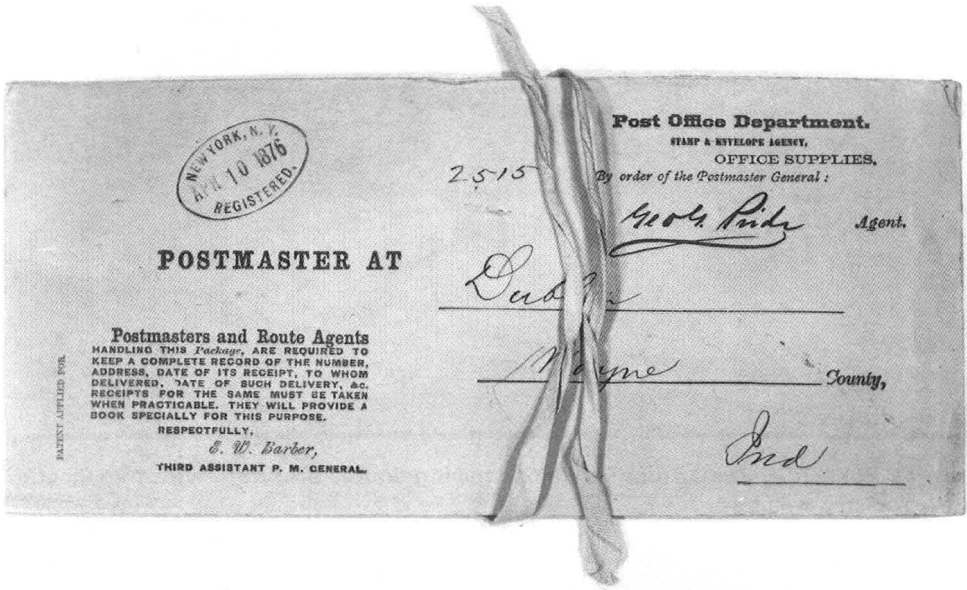 Post Office Department.
STAMP & ENVELOPE AGENCY,
OFFICE SUPPLIES,
By order of the Postmaster General:
Geo G. Pride Agent.
NEW YORK, N.Y.
APR 10 1876
REGISTERED.
2515
POSTMASTER AT
Dublin
Wayne County,
Ind
Postmasters and Route Agents
HANDLING THIS Package, ARE REQUIRED TO
KEEP A COMPLETE RECORD OF THE NUMBER,
ADDRESS, DATE OF ITS RECEIPT, TO WHOM
DELIVERED, DATE OF SUCH DELIVERY, &c.
RECEIPTS FOR THE SAME MUST BE TAKEN
WHEN PRACTICABLE. THEY WILL PROVIDE A
BOOK SPECIALLY FOR THIS PURPOSE.
RESPECTFULLY,
E. W. Barber,
THIRD ASSISTANT P. M. GENERAL.
PATENT APPLIED FOR.